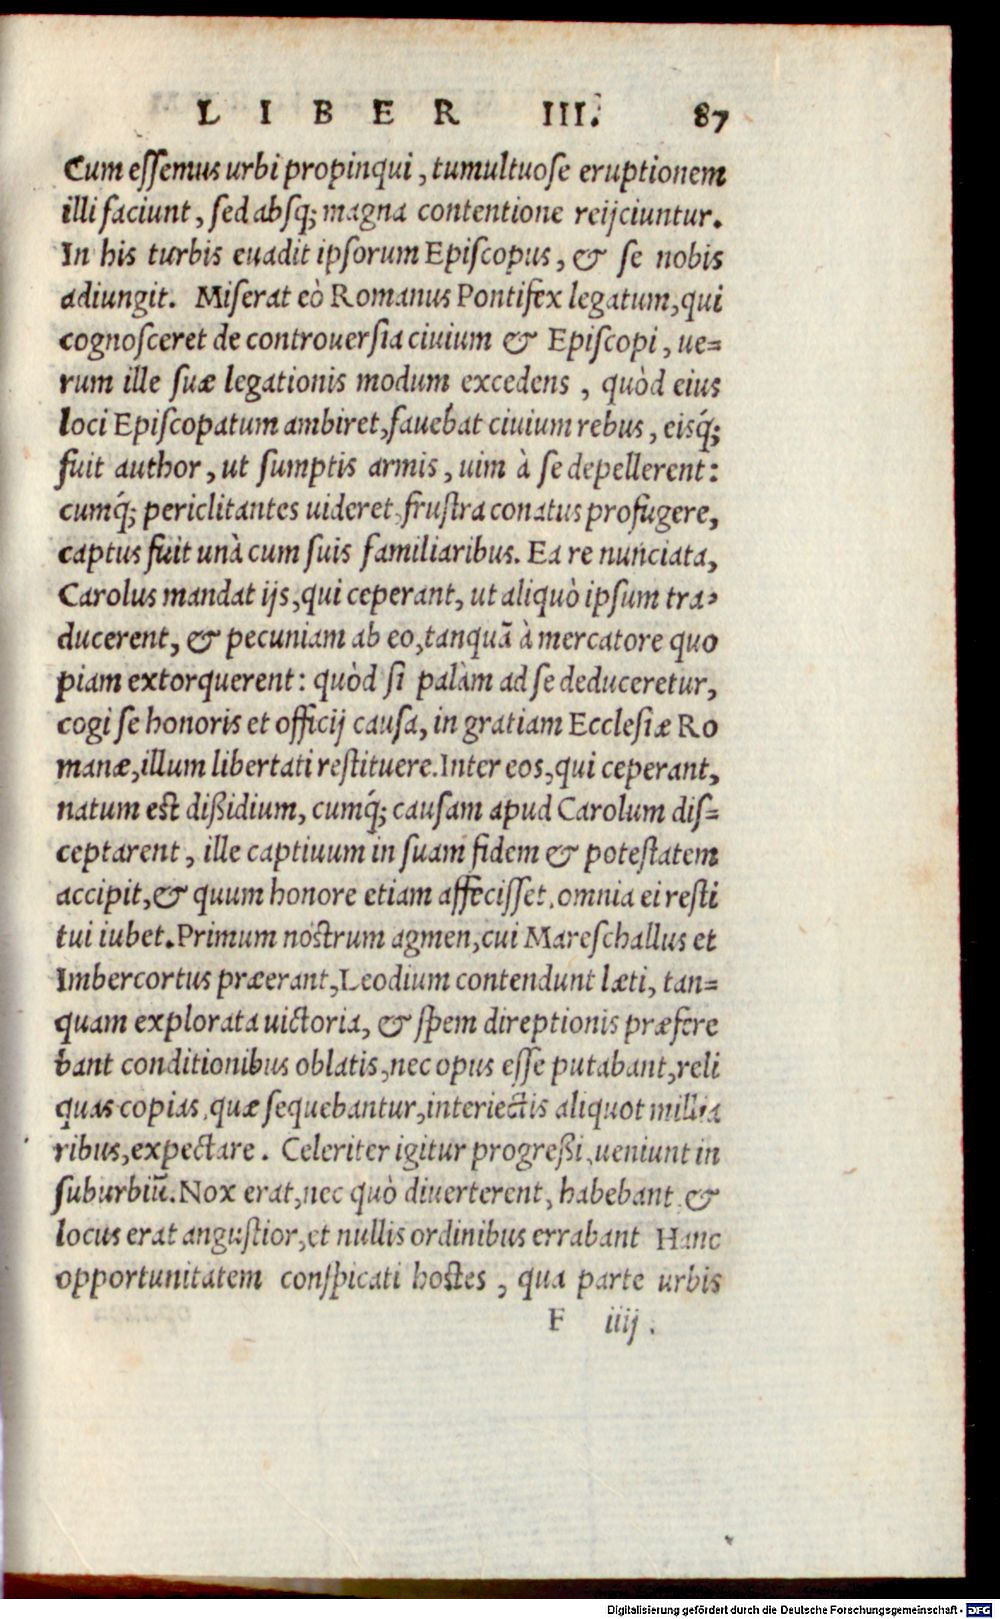 LIBER III. 87
Cum essemus urbi propinqui, tumultuose eruptionem
illi faciunt, sed absq; magna contentione reijciuntur.
In his turbis euadit ipsorum Episcopus, & se nobis
adiungit. Miserat eò Romanus Pontifex legatum, qui
cognosceret de controuersia ciuium & Episcopi, ue=
rum ille suæ legationis modum excedens, quòd eius
loci Episcopatum ambiret, fauebat ciuium rebus, eisq́;
fuit author, ut sumptis armis, uim à se depellerent:
cumq́; periclitantes uideret, frustra conatus profugere,
captus fuit unà cum suis familiaribus. Ea re nunciata,
Carolus mandat ijs, qui ceperant, ut aliquò ipsum tra=
ducerent, & pecuniam ab eo, tanquã à mercatore quo
piam extorquerent: quòd si palàm ad se deduceretur,
cogi se honoris et officij causa, in gratiam Ecclesiæ Ro
manæ, illum libertati restituere. Inter eos, qui ceperant,
natum est dißidium, cumq́; causam apud Carolum dis=
ceptarent, ille captiuum in suam fidem & potestatem
accipit, & quum honore etiam affecisset, omnia ei resti
tui iubet. Primum nostrum agmen, cui Mareschallus et
Imbercortus præerant, Leodium contendunt læti, tan=
quam explorata uictoria, & spem direptionis præfere
bant conditionibus oblatis, nec opus esse putabant, reli
quas copias, quæ sequebantur, interiectis aliquot millia
ribus, expectare. Celeriter igitur progreßi, ueniunt in
suburbiũ. Nox erat, nec quò diuerterent, habebant, &
locus erat angustior, et nullis ordinibus errabant Hanc
opportunitatem conspicati hostes, qua parte urbis
F iiij.
Digitalisierung gefördert durch die Deutsche Forschungsgemeinschaft - DFG